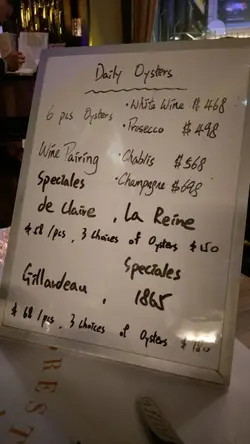 Daily Oysters
6 pcs Oysters
• White Wine $468
• Prosecco $498
Wine Pairing
• Chablis $568
• Champagne $698
Speciales
de Claire , La Reine
$58/pcs, 3 choices of Oysters $150
Gillardeau , Speciales
1865
$68/pcs, 3 choices of Oysters $180
REST